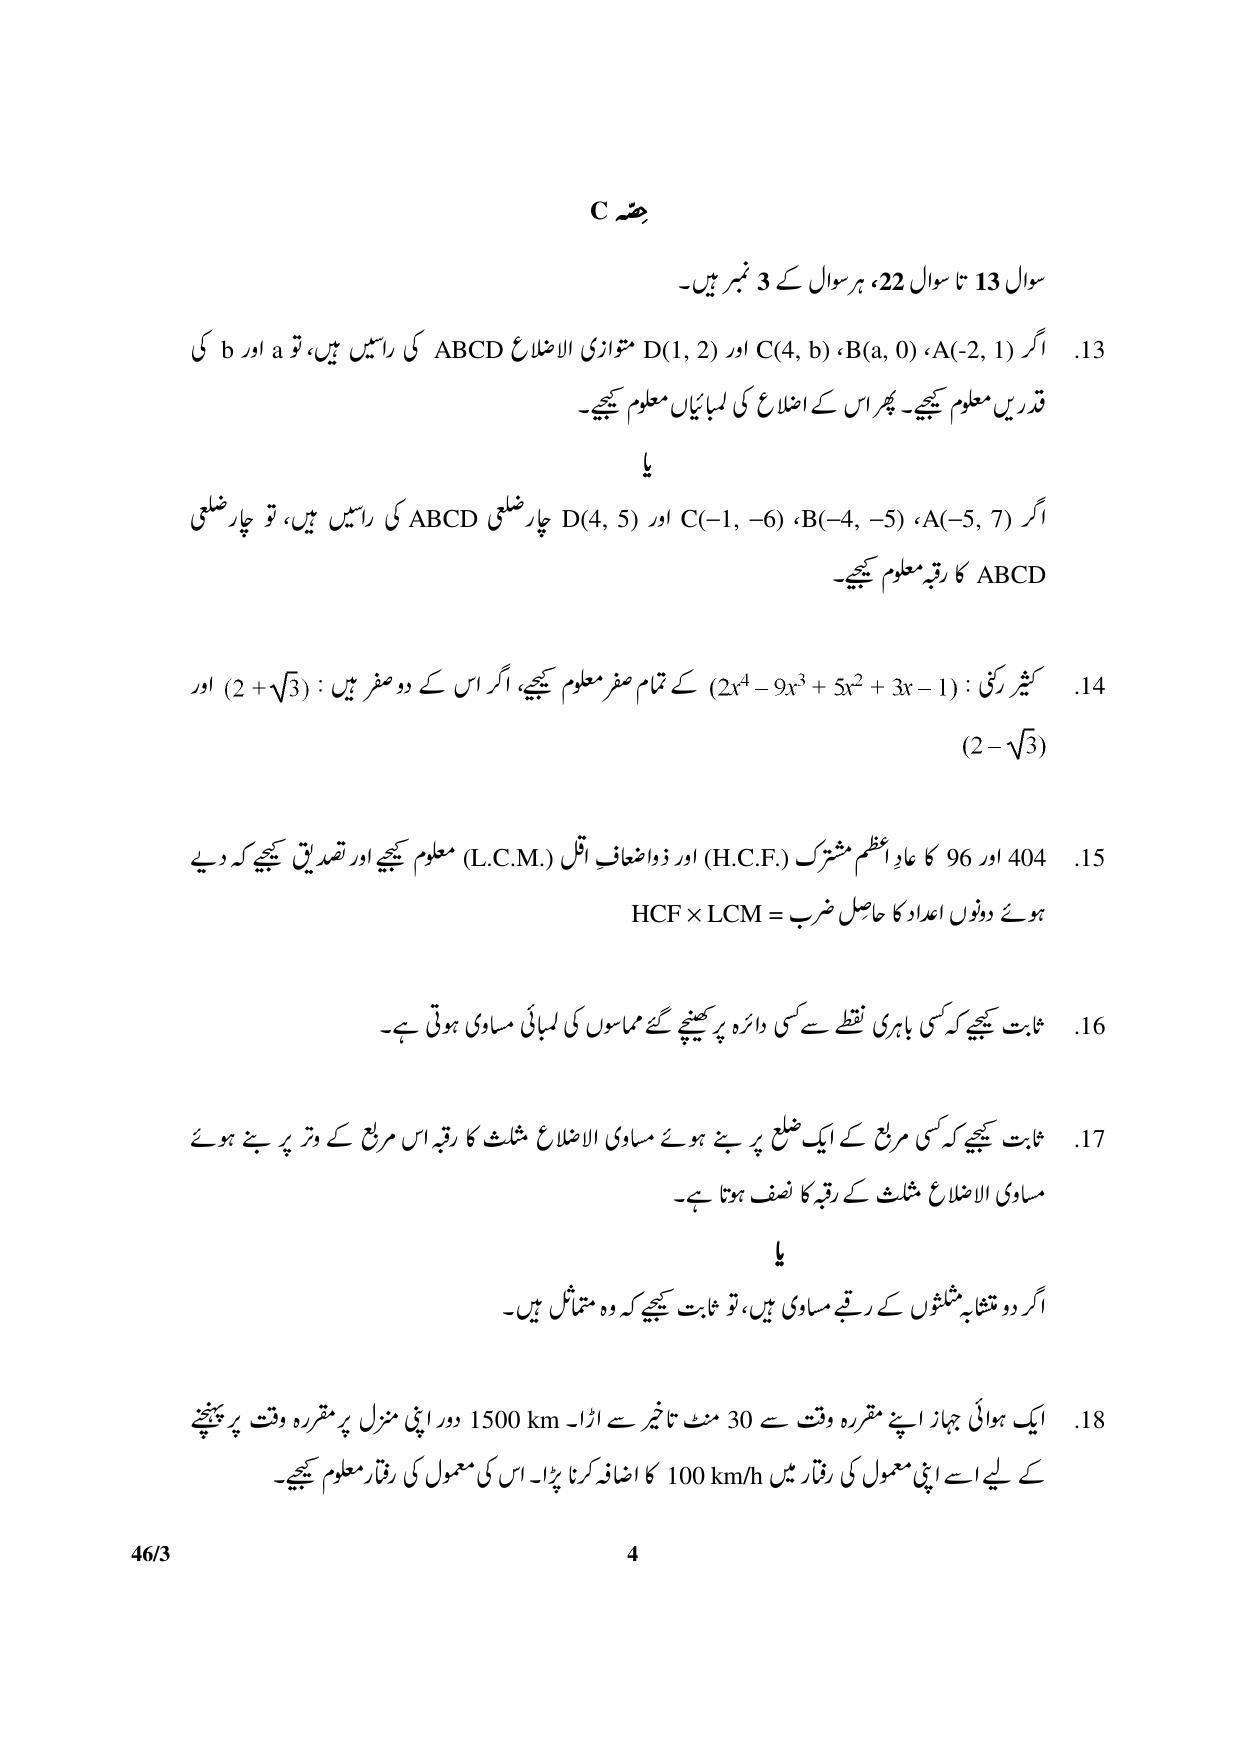 حِصّہ C
سوال 13 تا سوال 22، ہر سوال کے 3 نمبر ہیں۔
13. اگر A(-2, 1)، B(a, 0)، C(4, b) اور D(1, 2) متوازی الاضلاع ABCD کی راسیں ہیں، تو a اور b کی
قدریں معلوم کیجیے۔ پھر اس کے اضلاع کی لمبائیاں معلوم کیجیے۔
یا
اگر A(–5, 7)، B(–4, –5)، C(–1, –6) اور D(4, 5) چار ضلعی ABCD کی راسیں ہیں، تو چار ضلعی
ABCD کا رقبہ معلوم کیجیے۔
14. کثیر رکنی : (2x⁴ – 9x³ + 5x² + 3x – 1) کے تمام صفر معلوم کیجیے، اگر اس کے دو صفر ہیں : (2 + √3) اور
(2 – √3)
15. 404 اور 96 کا عادِ اعظم مشترک (H.C.F.) اور ذواضعافِ اقل (L.C.M.) معلوم کیجیے اور تصدیق کیجیے کہ دیے
ہوئے دونوں اعداد کا حاصِل ضرب = HCF × LCM
16. ثابت کیجیے کہ کسی باہری نقطے سے کسی دائرہ پر کھینچے گئے مماسوں کی لمبائی مساوی ہوتی ہے۔
17. ثابت کیجیے کہ کسی مربع کے ایک ضلع پر بنے ہوئے مساوی الاضلاع مثلث کا رقبہ اس مربع کے وتر پر بنے ہوئے
مساوی الاضلاع مثلث کے رقبہ کا نصف ہوتا ہے۔
یا
اگر دو متشابہ مثلثوں کے رقبے مساوی ہیں، تو ثابت کیجیے کہ وہ متماثل ہیں۔
18. ایک ہوائی جہاز اپنے مقررہ وقت سے 30 منٹ تاخیر سے اڑا۔ 1500 km دور اپنی منزل پر مقررہ وقت پر پہنچنے
کے لیے اسے اپنی معمول کی رفتار میں 100 km/h کا اضافہ کرنا پڑا۔ اس کی معمول کی رفتار معلوم کیجیے۔
46/3 4